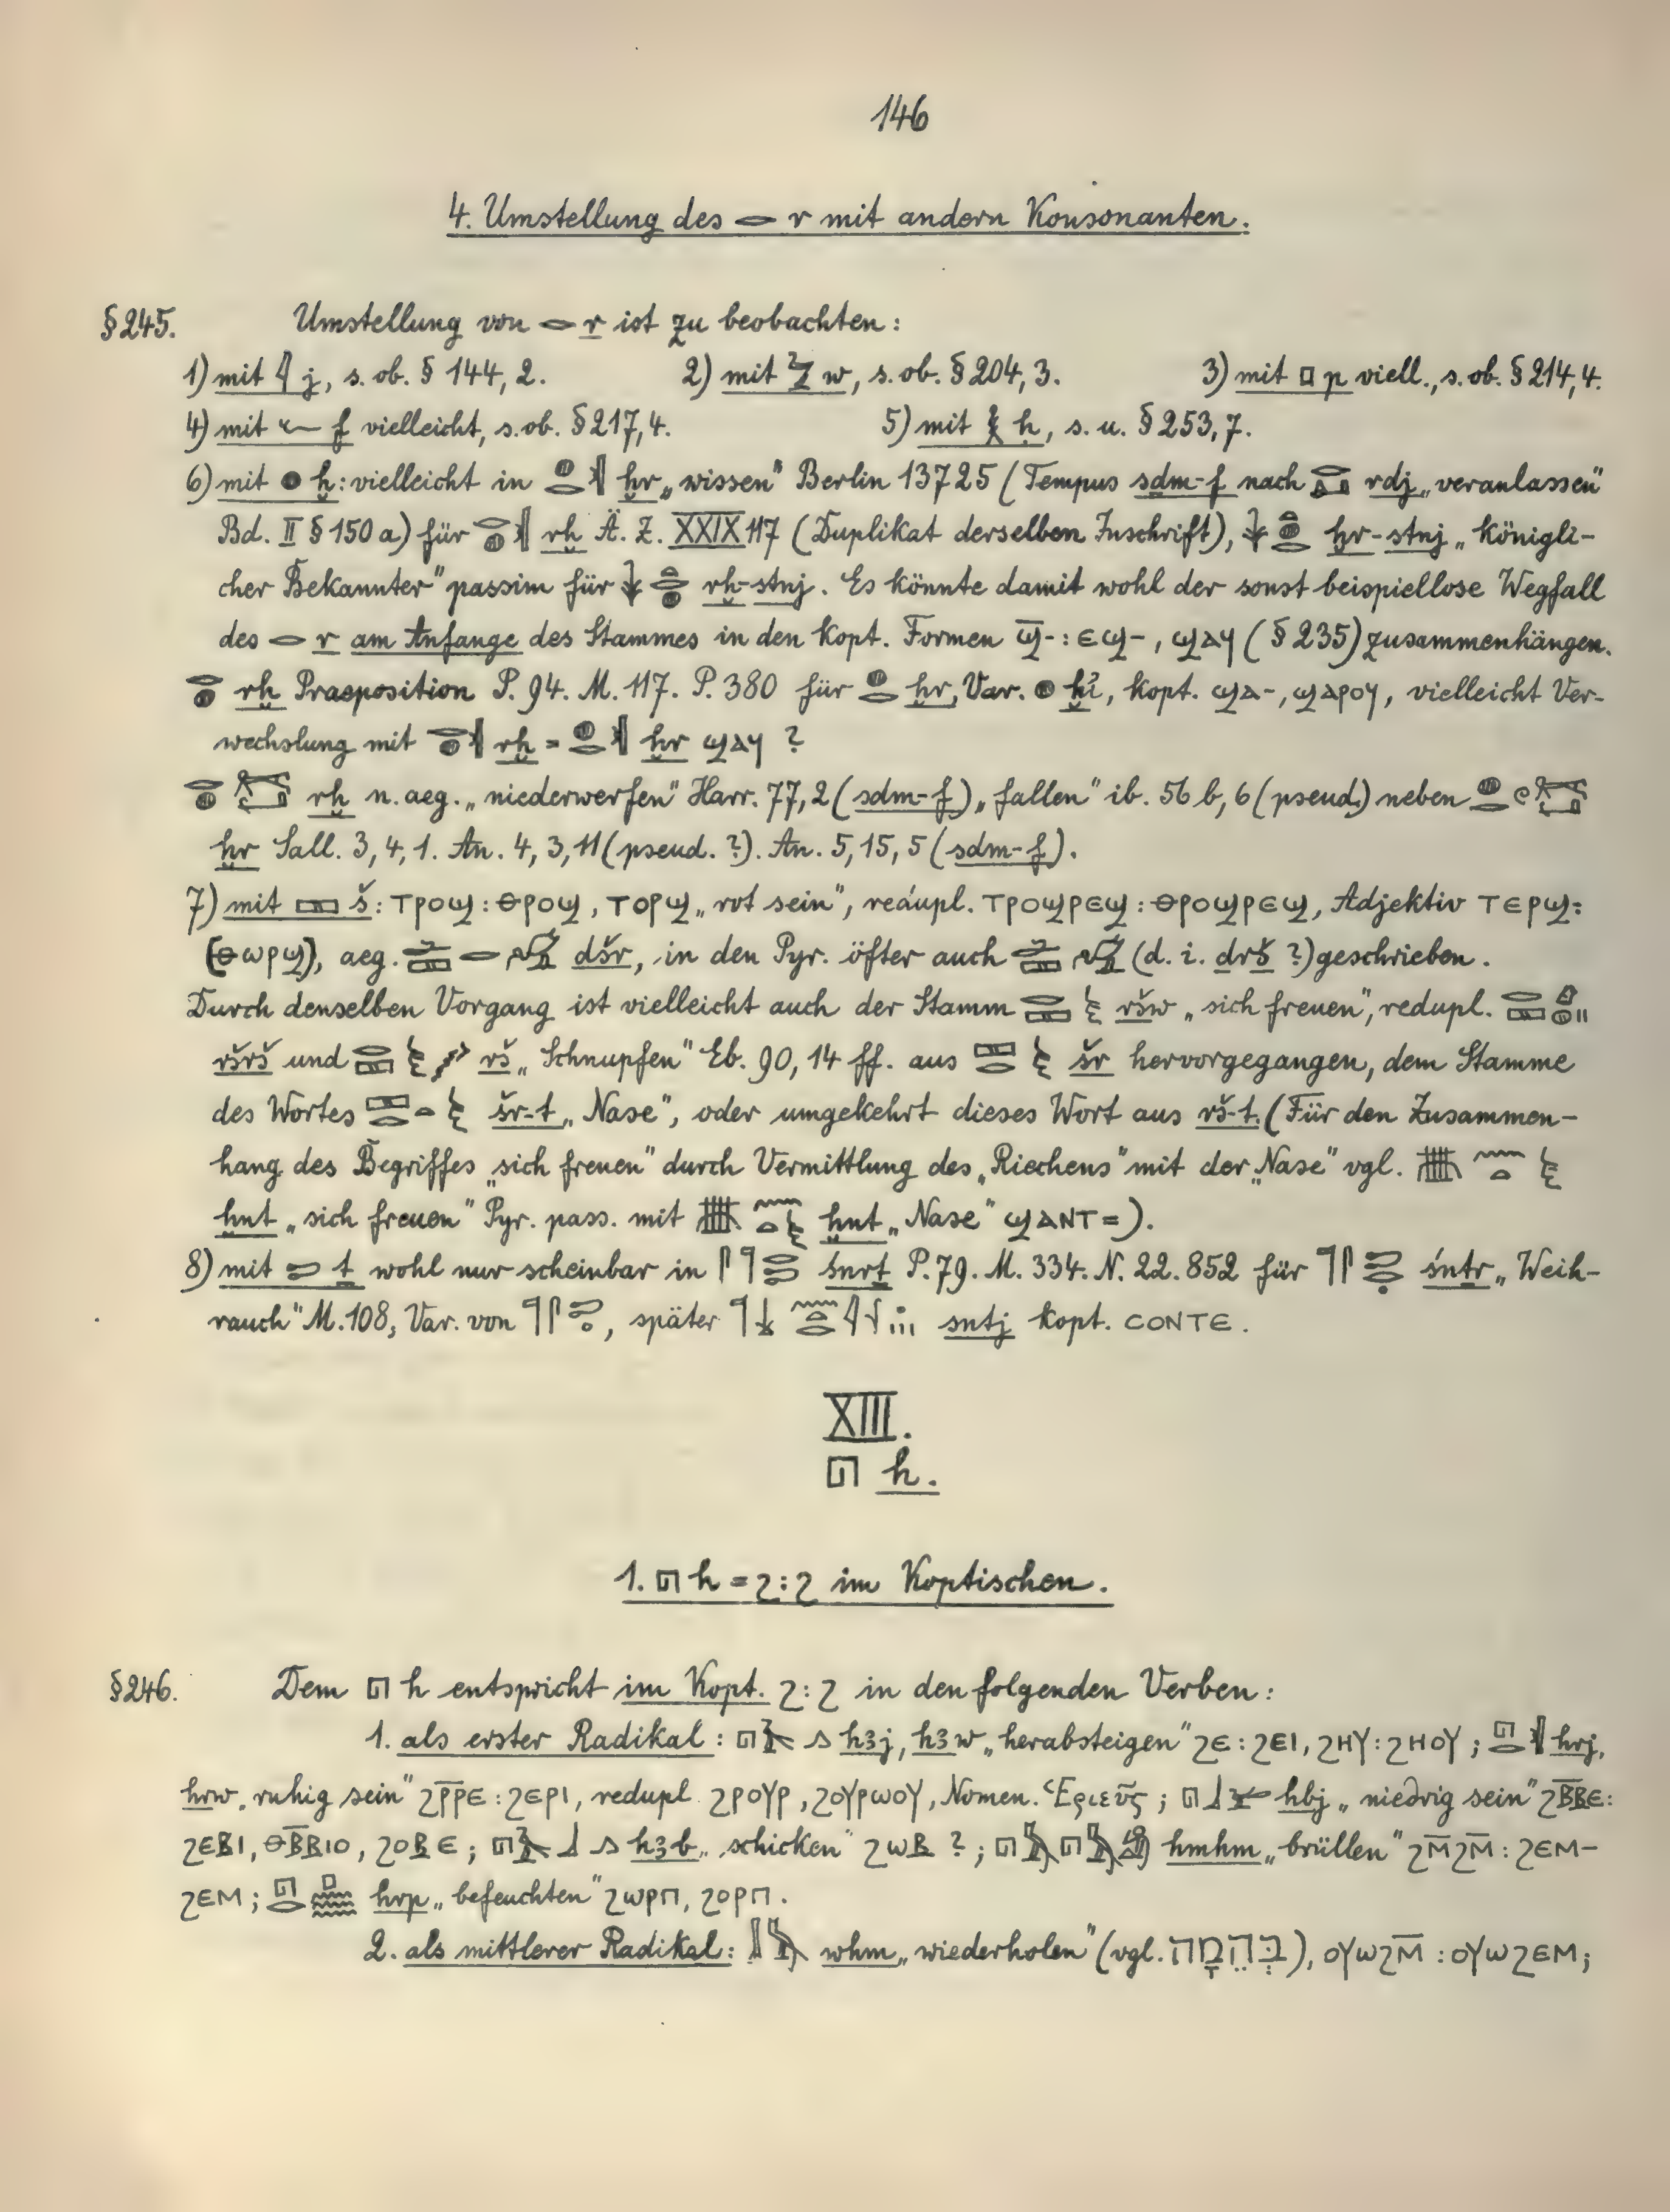 146
4. Umstellung des 𓂋 r mit andern Konsonanten.
§245. Umstellung von 𓂋 r ist zu beobachten:
1) mit 𓇋 j, s. ob. § 144, 2. 2) mit 𓅱 w, s. ob. § 204, 3. 3) mit 𓊪 p viell., s. ob. § 214, 4.
4) mit 𓆑 f vielleicht, s. ob. § 217, 4. 5) mit 𓎛 ḥ, s. u. § 253, 7.
6) mit 𓐍 ḫ: vielleicht in 𓐍𓂋𓏛 ḫr „wissen" Berlin 13725 (Tempus sdm-f nach 𓂋𓂞 rdj „veranlassen"
Bd. II § 150 a) für 𓂋𓐍𓏛 rḫ Ä. Z. XXIX 117 (Duplikat derselben Inschrift), 𓇓𓏏𓐍𓂋 ḫr-stnj „königli-
cher Bekannter" passim für 𓇓𓏏𓂋𓐍 rḫ-stnj. Es könnte damit wohl der sonst beispiellose Wegfall
des 𓂋 r am Anfange des Stammes in den kopt. Formen ϣ̅-: ⲉϣ-, ϣⲁⲩ (§ 235) zusammenhängen.
𓂋𓐍 rḫ Praeposition P. 94. M. 117. P. 380 für 𓐍𓂋 ḫr, Var. 𓐍 ḫỉ, kopt. ϣⲁ-, ϣⲁⲣⲟϥ, vielleicht Ver-
wechslung mit 𓂋𓐍𓏛 rḫ = 𓐍𓂋𓏛 ḫr ϣⲁⲩ ?
𓂋𓐍 rḫ n. aeg. „niederwerfen" Harr. 77, 2 (sdm-f) „fallen" ib. 56 b, 6 (pseud.) neben 𓐍𓂋𓏲
ḫr Sall. 3, 4, 1. An. 4, 3, 11 (pseud. ?). An. 5, 15, 5 (sdm-f).
7) mit 𓈙 š: ⲧⲣⲟϣ : ⲑⲣⲟϣ, ⲧⲟⲣϣ „rot sein", redupl. ⲧⲣⲟϣⲣⲉϣ : ⲑⲣⲟϣⲣⲉϣ, Adjektiv ⲧⲉⲣϣ:
(ⲑⲱⲣϣ), aeg. 𓂧𓈙𓂋𓅟 dšr, in den Pyr. öfter auch 𓂧𓈙𓅟 (d. i. drš ?) geschrieben.
Durch denselben Vorgang ist vielleicht auch der Stamm 𓂋𓈙𓂉 ršw „sich freuen", redupl. 𓂋𓈙
ršrš und 𓂋𓈙𓂉 rš „Schnupfen" Eb. 90, 14 ff. aus 𓈙𓂋𓂉 šr hervorgegangen, dem Stamme
des Wortes 𓈙𓂋𓏏𓂉 šr-t „Nase", oder umgekehrt dieses Wort aus rš-t. (Für den Zusammen-
hang des Begriffes „sich freuen" durch Vermittlung des „Riechens" mit der „Nase" vgl. 𓏃𓈖𓏏𓂉
ḫnt „sich freuen" Pyr. pass. mit 𓏃𓈖𓏏𓂉 ḫnt „Nase" ϣⲁⲛⲧ=).
8) mit 𓍿 ṯ wohl nur scheinbar in 𓋴𓊹𓂋𓍿 śnrṯ P. 79. M. 334. N. 22. 852 für 𓊹𓋴𓍿𓂋 śnṯr „Weih-
rauch" M. 108, Var. von 𓊹𓋴𓍿, später 𓊹𓌢𓈖𓏏𓂋𓇋𓇋 sntj kopt. ⲥⲟⲛⲧⲉ.
XIII.
𓉔 h.
1. 𓉔 h = ϩ : ϩ im Koptischen.
§246. Dem 𓉔 h entspricht im Kopt. ϩ : ϩ in den folgenden Verben:
1. als erster Radikal: 𓉔𓄿𓂻 hꜣj, hꜣw „herabsteigen" ϩⲉ : ϩⲉⲓ, ϩⲏⲩ : ϩⲏⲟⲩ ; 𓉔𓂋𓏛 hrj,
hrw „ruhig sein" ϩⲣ̅ⲣⲉ : ϩⲉⲣⲓ, redupl ϩⲣⲟⲩⲣ, ϩⲟⲩⲣⲱⲟⲩ, Nomen. Ἑριεῦς ; 𓉔𓃀 hbj „niedrig sein" ϩⲃ̅ⲃⲉ:
ϩⲉⲃⲓ, ⲑⲃ̅ⲃⲓⲟ, ϩⲟⲃⲉ ; 𓉔𓄿𓃀𓂻 hꜣb „schicken" ϩⲱⲃ ? ; 𓉔𓅓𓉔𓅓𓀁 hmhm „brüllen" ϩⲙ̅ϩⲙ̅ : ϩⲉⲙ-
ϩⲉⲙ ; 𓉔𓂋𓊪𓈗 hrp „befeuchten" ϩⲱⲣⲡ, ϩⲟⲣⲡ.
2. als mittlerer Radikal: 𓄙𓅓 whm „wiederholen" (vgl. בְּהֵמָה), ⲟⲩⲱϩⲙ̅ : ⲟⲩⲱϩⲉⲙ;